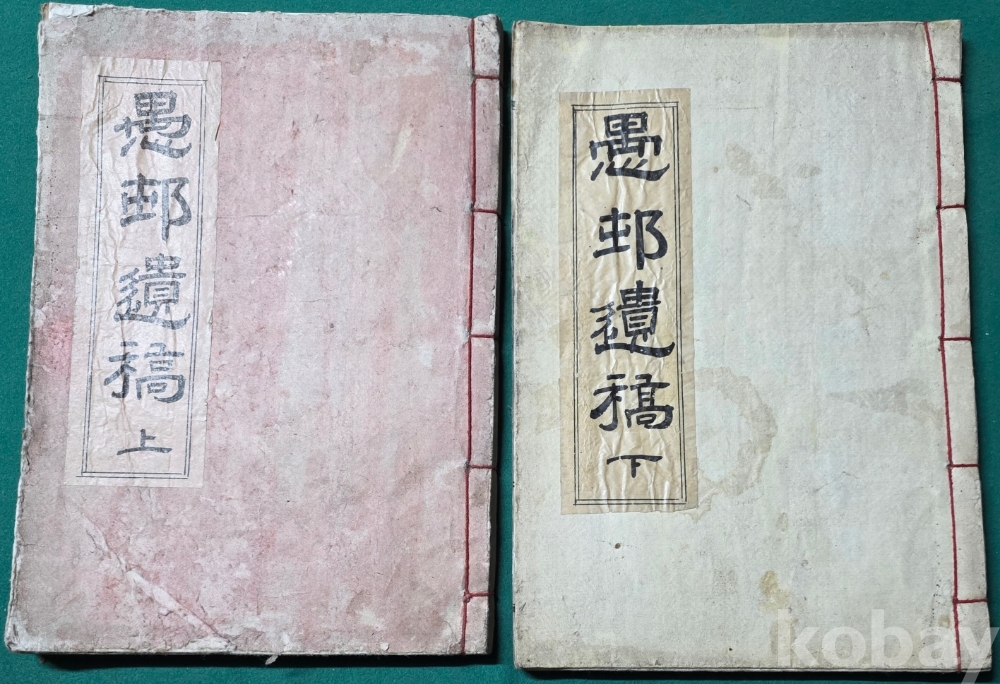 愚邨遺稿 上
愚邨遺稿 下
kobay